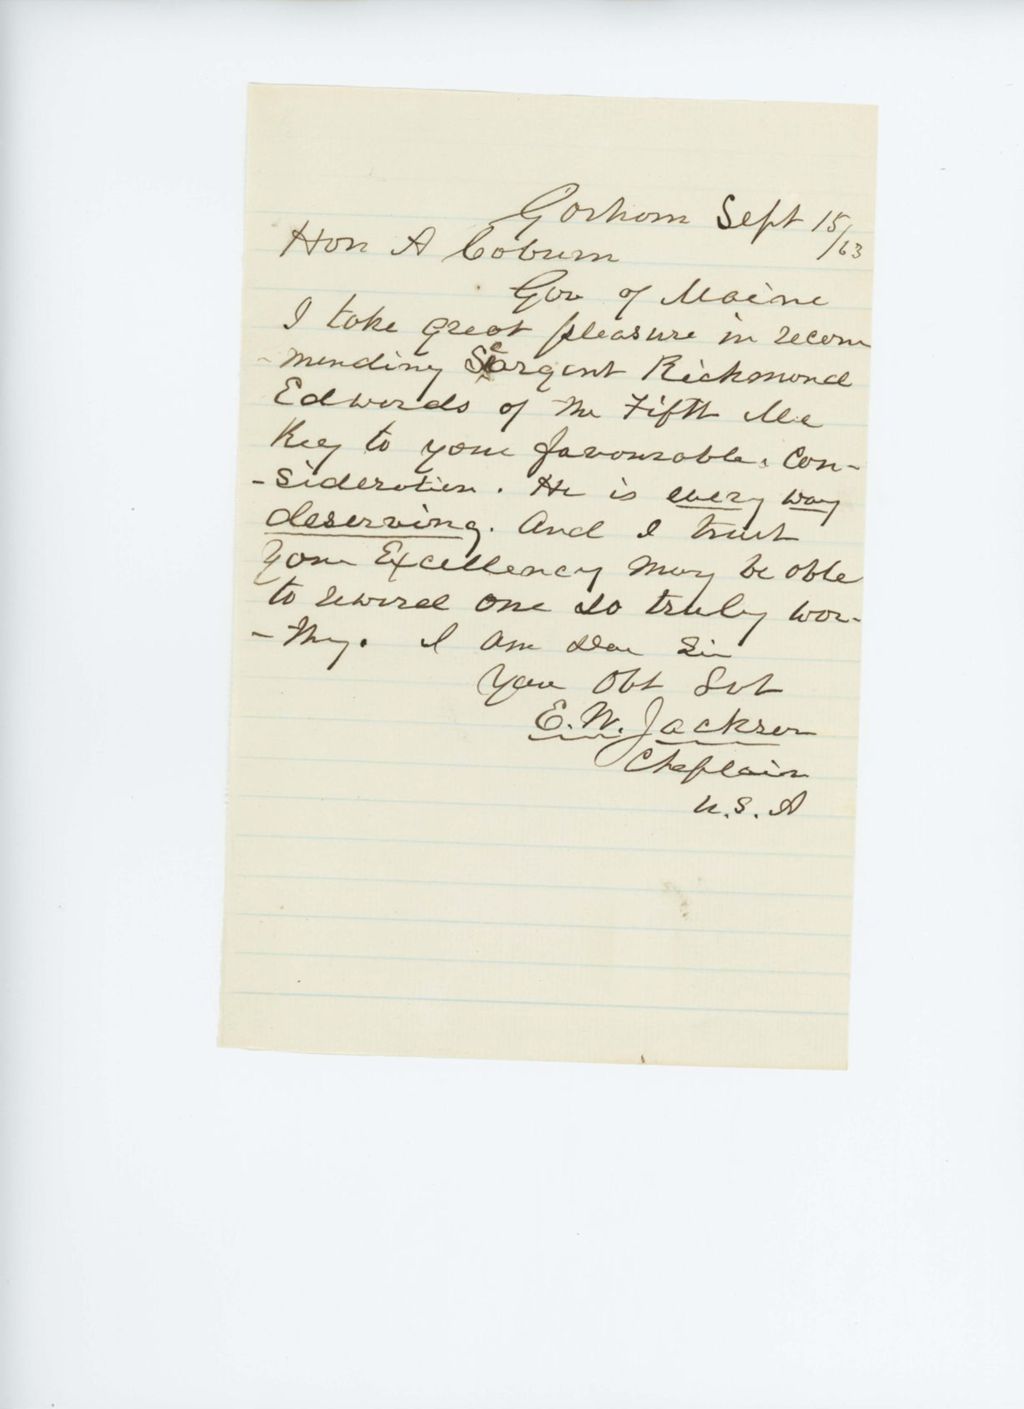 Gorham Sept 15/63
Hon A Coburn
Gov of Maine
I take great pleasure in recom
-mending Sergent Richmond
Edwards of the Fifth Me
Reg to your favourable. Con-
-sideration. He is every way
deserving. And I trust
Your Excellency may be able
to reward one so truly wor-
-thy. I am dear Sir
Your Obt Svt
E. W. Jackson
Chaplain
U.S.A